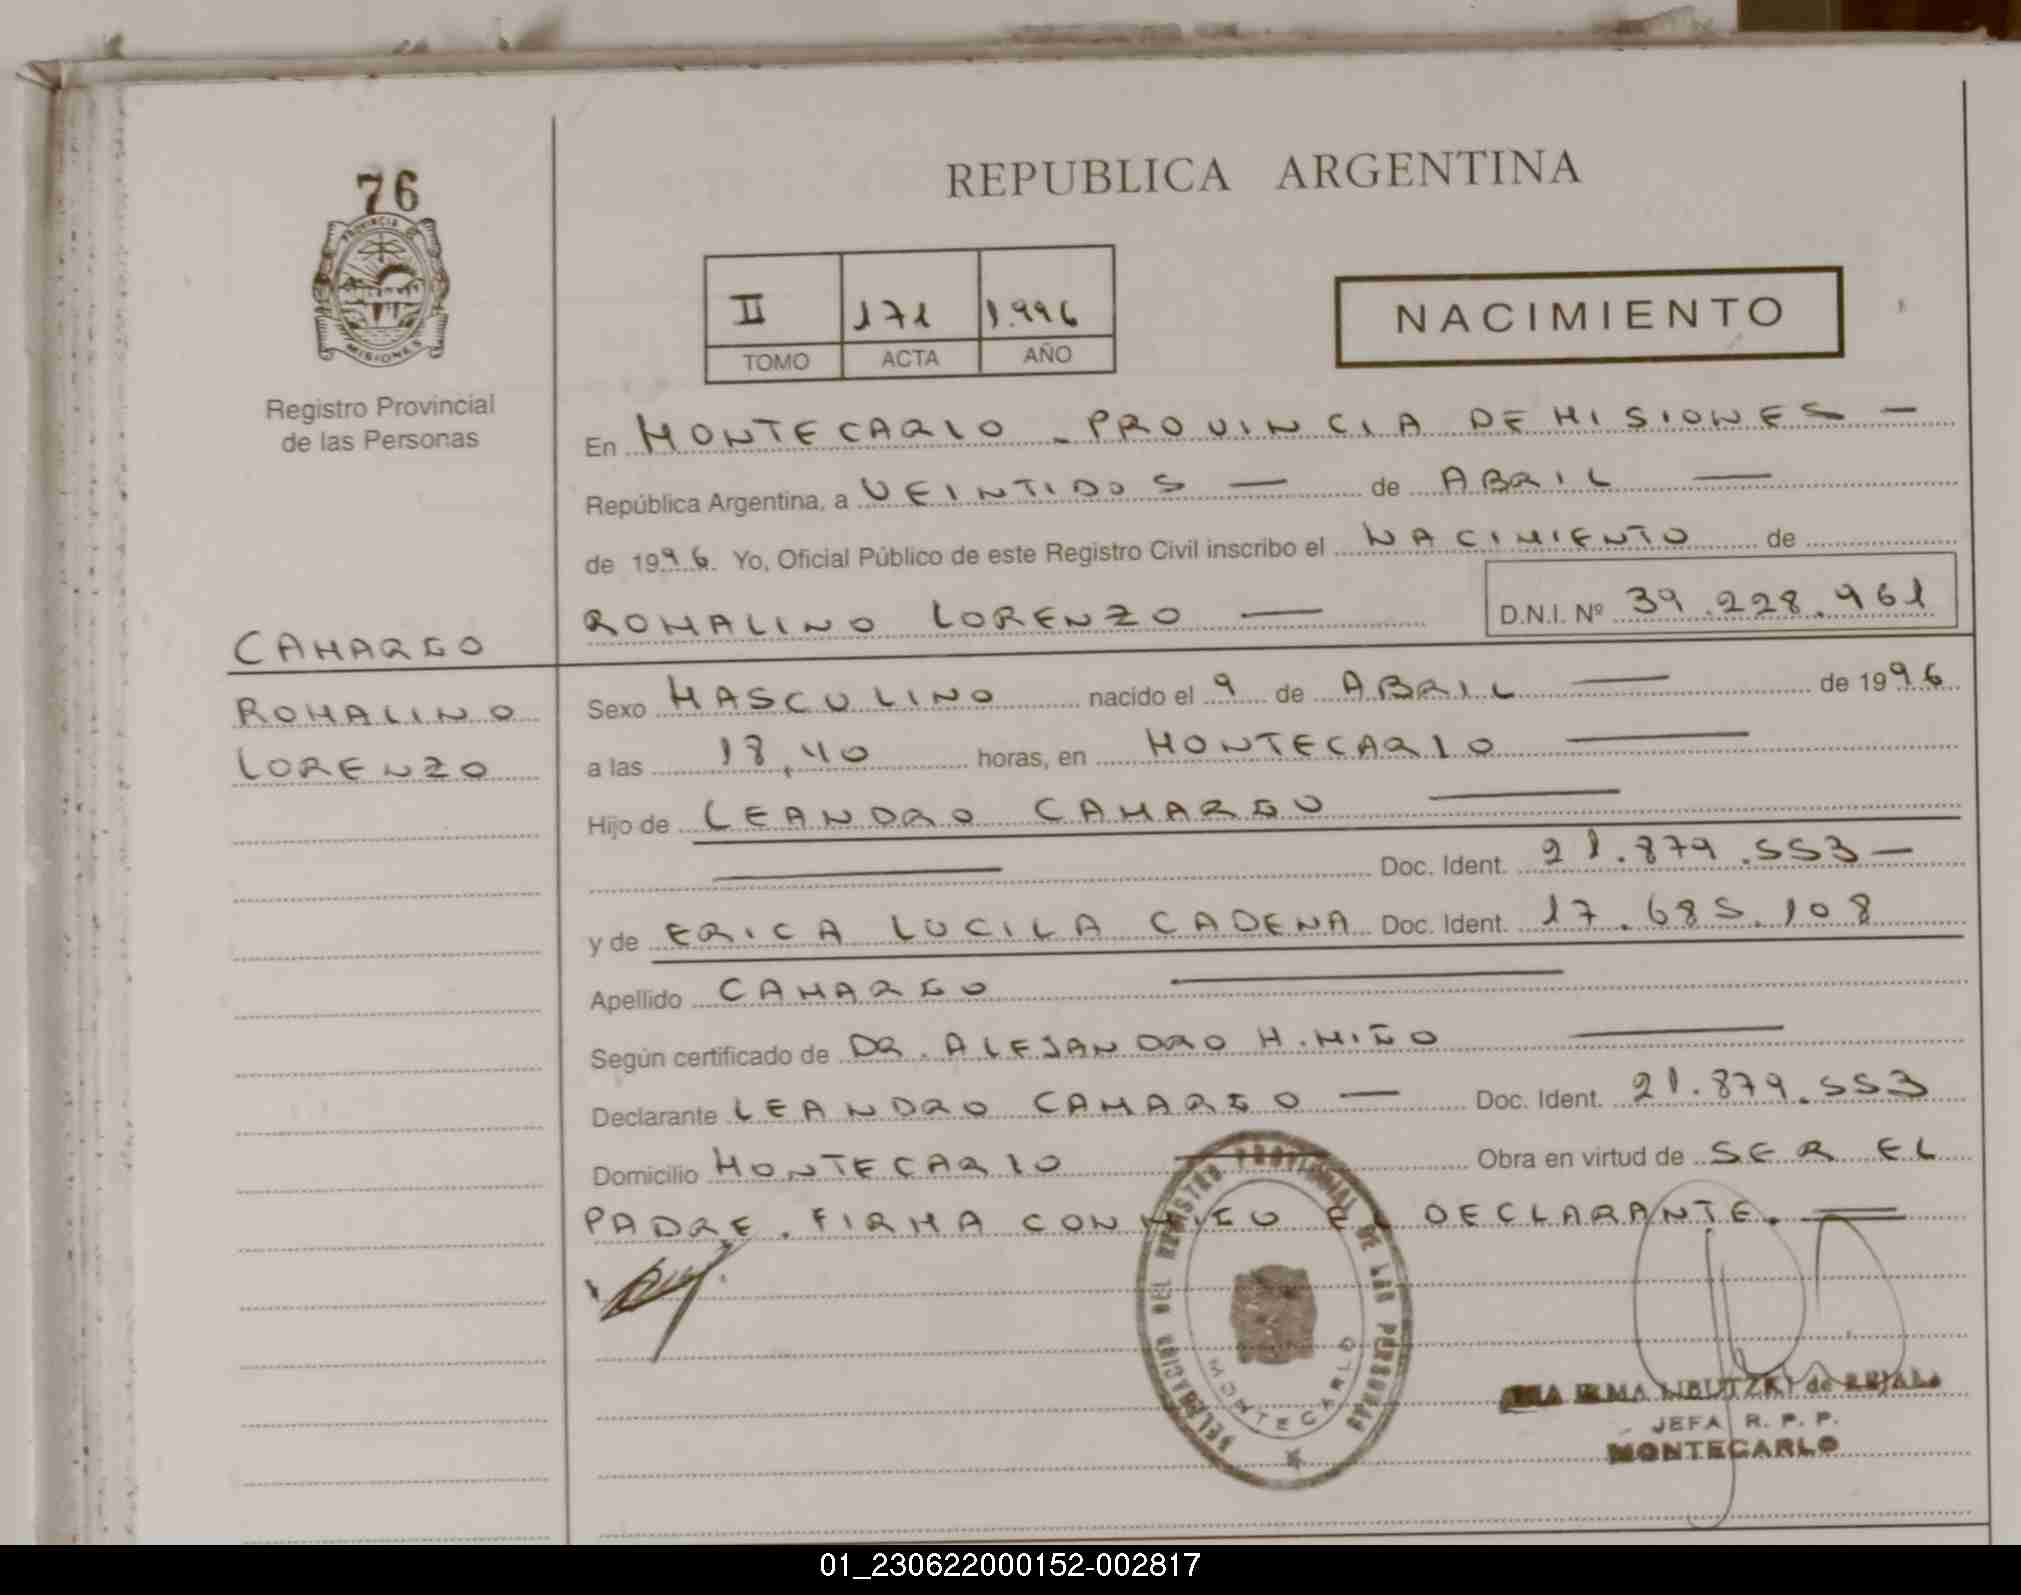 76
PROVINCIA DE
MISIONES
Registro Provincial
de las Personas
REPUBLICA ARGENTINA
II 171 1.996
TOMO ACTA AÑO
NACIMIENTO
En MONTECARLO - PROVINCIA DE MISIONES -
República Argentina, a VEINTIDOS — de ABRIL —
de 1996. Yo, Oficial Público de este Registro Civil inscribo el NACIMIENTO de
ROMALINO LORENZO — D.N.I. Nº 39.228.961
CAMARGO
ROMALINO
LORENZO
Sexo MASCULINO nacido el 9 de ABRIL — de 1996
a las 18,40 horas, en MONTECARLO —
Hijo de LEANDRO CAMARGO —
— Doc. Ident. 21.879.553 —
y de ERICA LUCILA CADENA Doc. Ident. 17.685.108
Apellido CAMARGO —
Según certificado de DR. ALEJANDRO H. MIÑO —
Declarante LEANDRO CAMARGO — Doc. Ident. 21.879.553
Domicilio MONTECARLO — Obra en virtud de SER EL
PADRE. FIRMA CONMIGO EL DECLARANTE. —
DELEGACION DEL REGISTRO PROVINCIAL DE LAS PERSONAS
MONTECARLO
IRMA de
JEFA R. P. P.
MONTECARLO
01_230622000152-002817